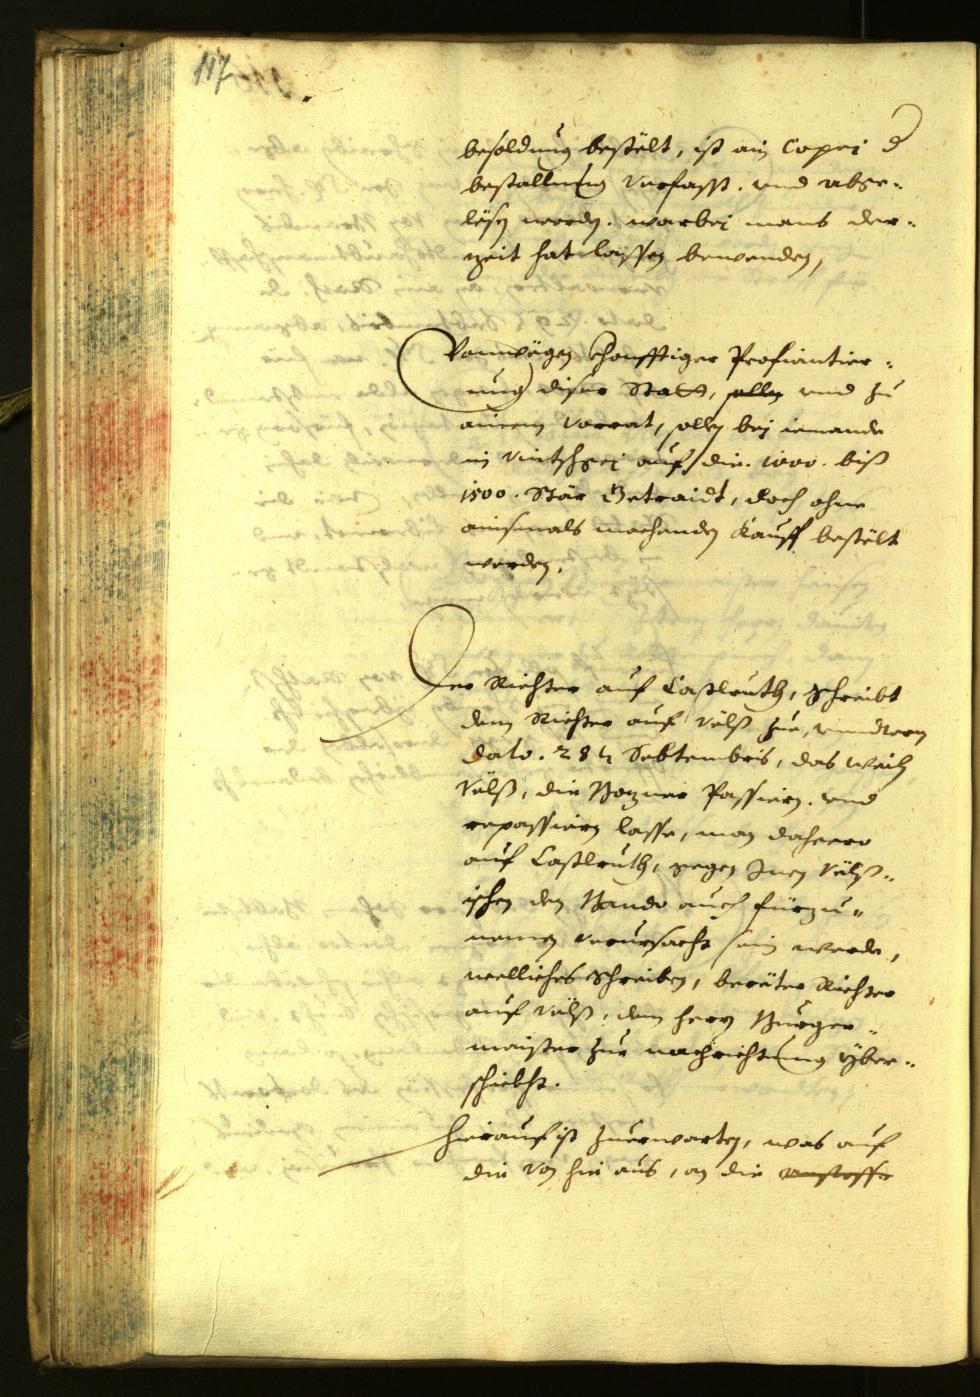 117
besoldung bestëlt, ist ain Copej d
bestallung verfasst. vnd abge„
lësen worden. warbej mans der„
zeit hat lassen bewenden,
Vonwëgen khonfftiger Profiantier„
ung diser Statt, sollen vnd zu
ainem Vorrat, sollen bej iemande
in Vintschgej auf die. 1000. biß
1500. Stär Getraidt, doch ohne
ainsmals machenden Kauff bestëlt
werden.
Der Richter auf Castlruth, schreibt
dem Richter auf Vëlß zue, vnndterm
dato. 28t Sebtembris, das weil
Vëlß, die Bozner Passiern. vnd
repassiern lasse, man dahero
auf Castlruth, gegen Inen Vëlß„
ischen den Banndo auch fürzu„
nemen verursacht sein werde,
welliches schreiben, berüter Richter
auf Vëlß, dem herrn Burger„
maister zur nachrichtung yber„
schickht.
Hierauf ist zuerwarten, was auf
die von hie aus, an die